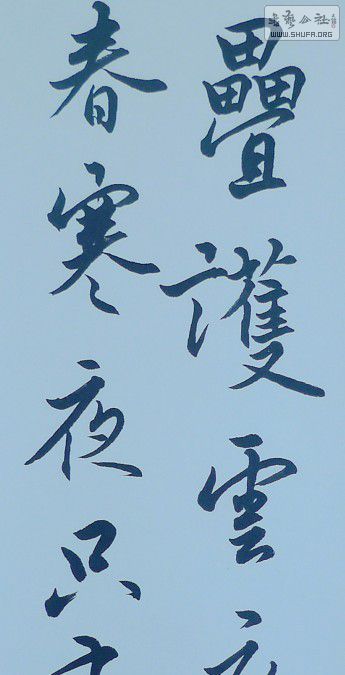 疊護雲
春寒夜只
書藝公社
WWW.SHUFA.ORG